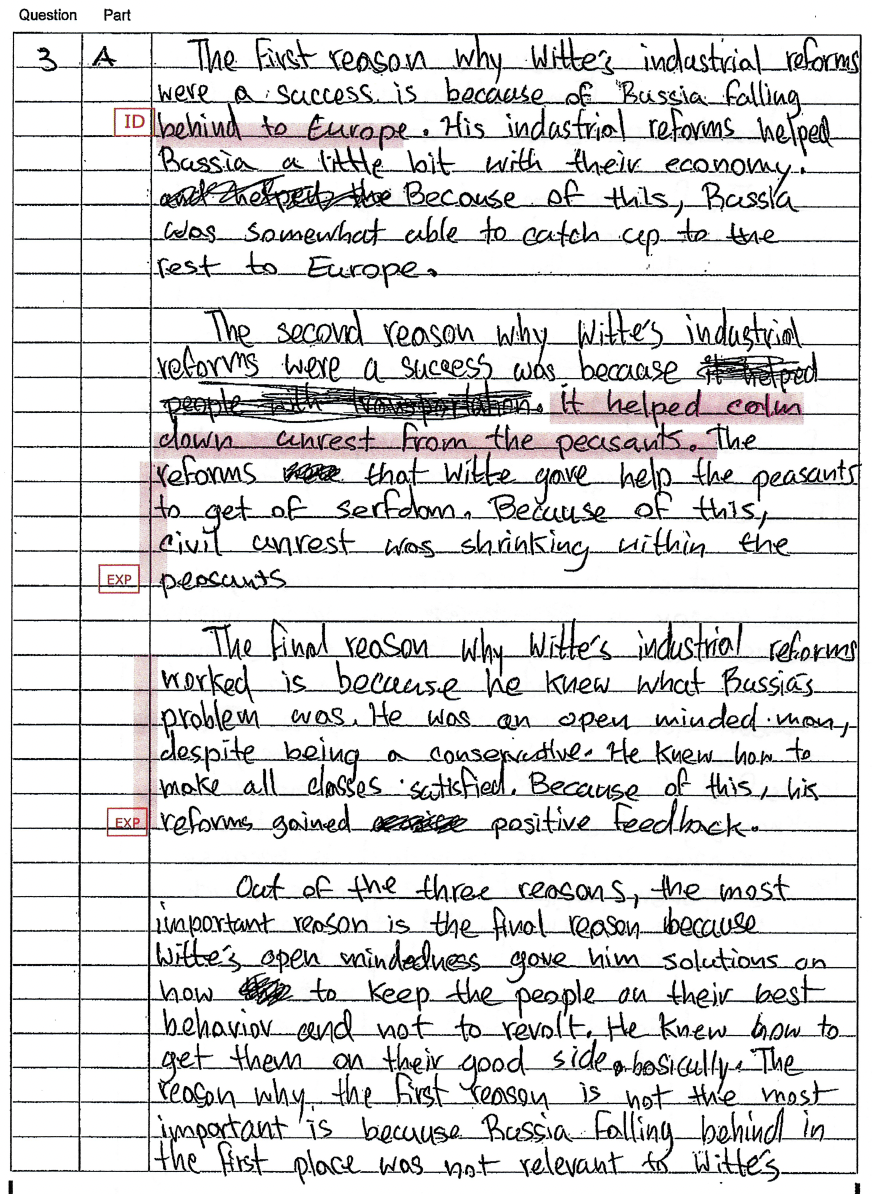 Question Part
3 A The First reason why Witte's industrial reforms
were a success is because of Russia falling
ID behind to Europe. His industrial reforms helped
Russia a little bit with their economy.
and helped the Because of this, Russia
was somewhat able to catch up to the
rest to Europe.
The second reason why Witte's industrial
reforms were a success was because it helped
people with transportation. it helped calm
down unrest from the peasants. The
reforms that Witte gave help the peasants
to get of serfdom. Because of this,
civil unrest was shrinking within the
EXP peasants
The final reason why Witte's industrial reforms
worked is because he knew what Russia's
problem was. He was an open minded man,
despite being a conservative. He knew how to
make all classes satisfied. Because of this, his
EXP reforms gained positive feedback.
Out of the three reasons, the most
important reason is the final reason because
Witte's open mindedness gave him solutions on
how to keep the people on their best
behavior and not to revolt. He knew how to
get them on their good side, basically. The
reason why the first reason is not the most
important is because Russia falling behind in
the first place was not relevant to Witte's